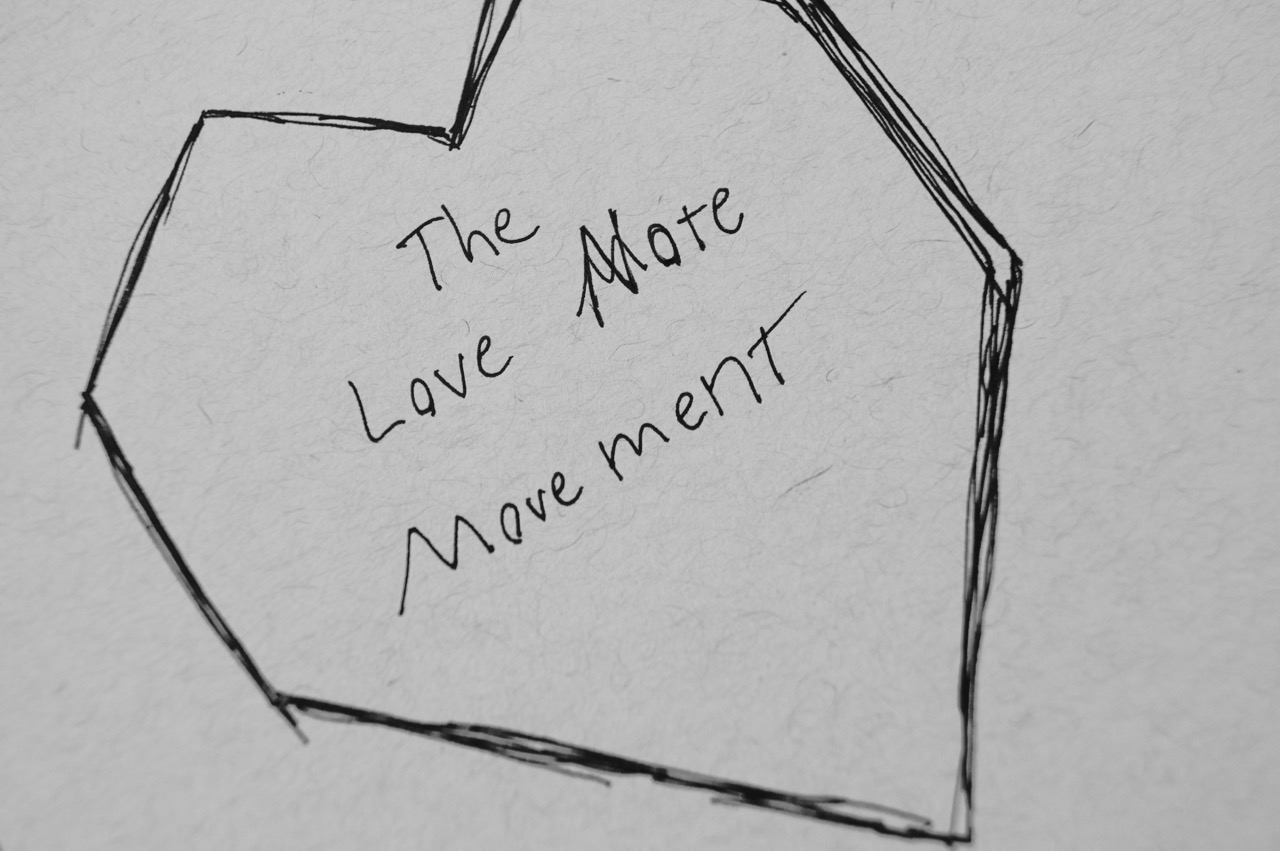 The
Love More
Movement